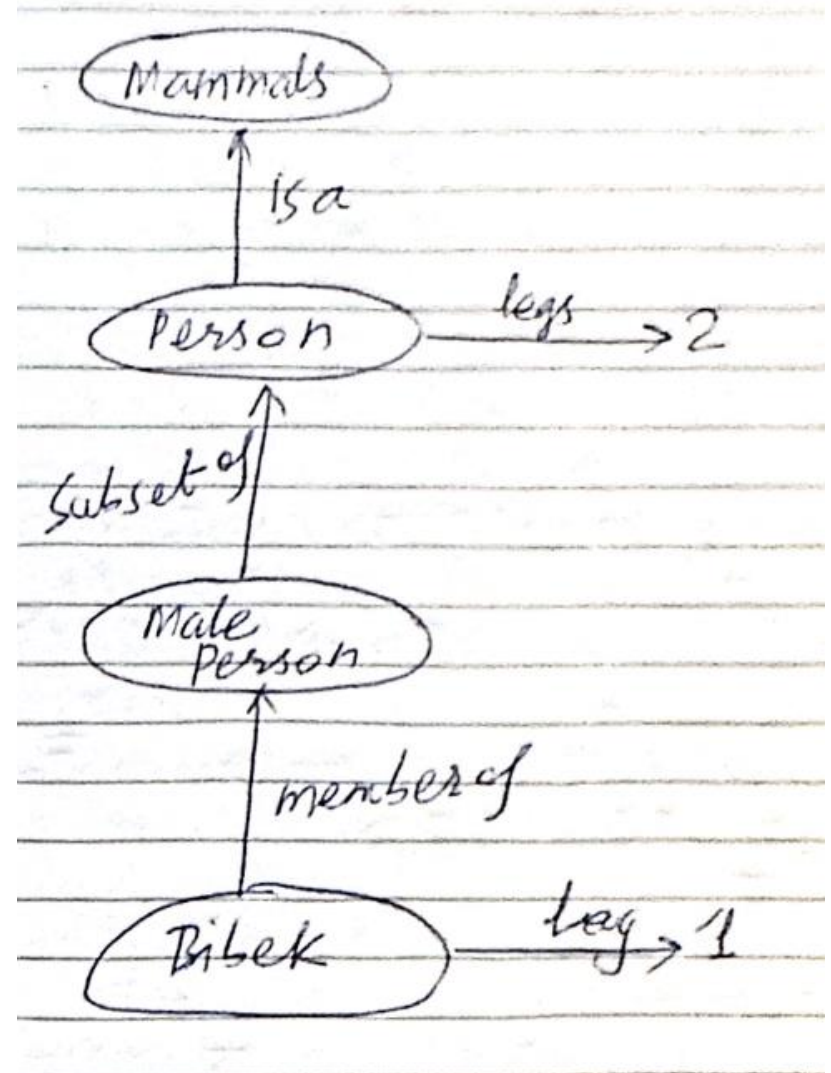 Mammals
is a
Person
legs
2
subset of
Male
Person
member of
Bibek
leg
1